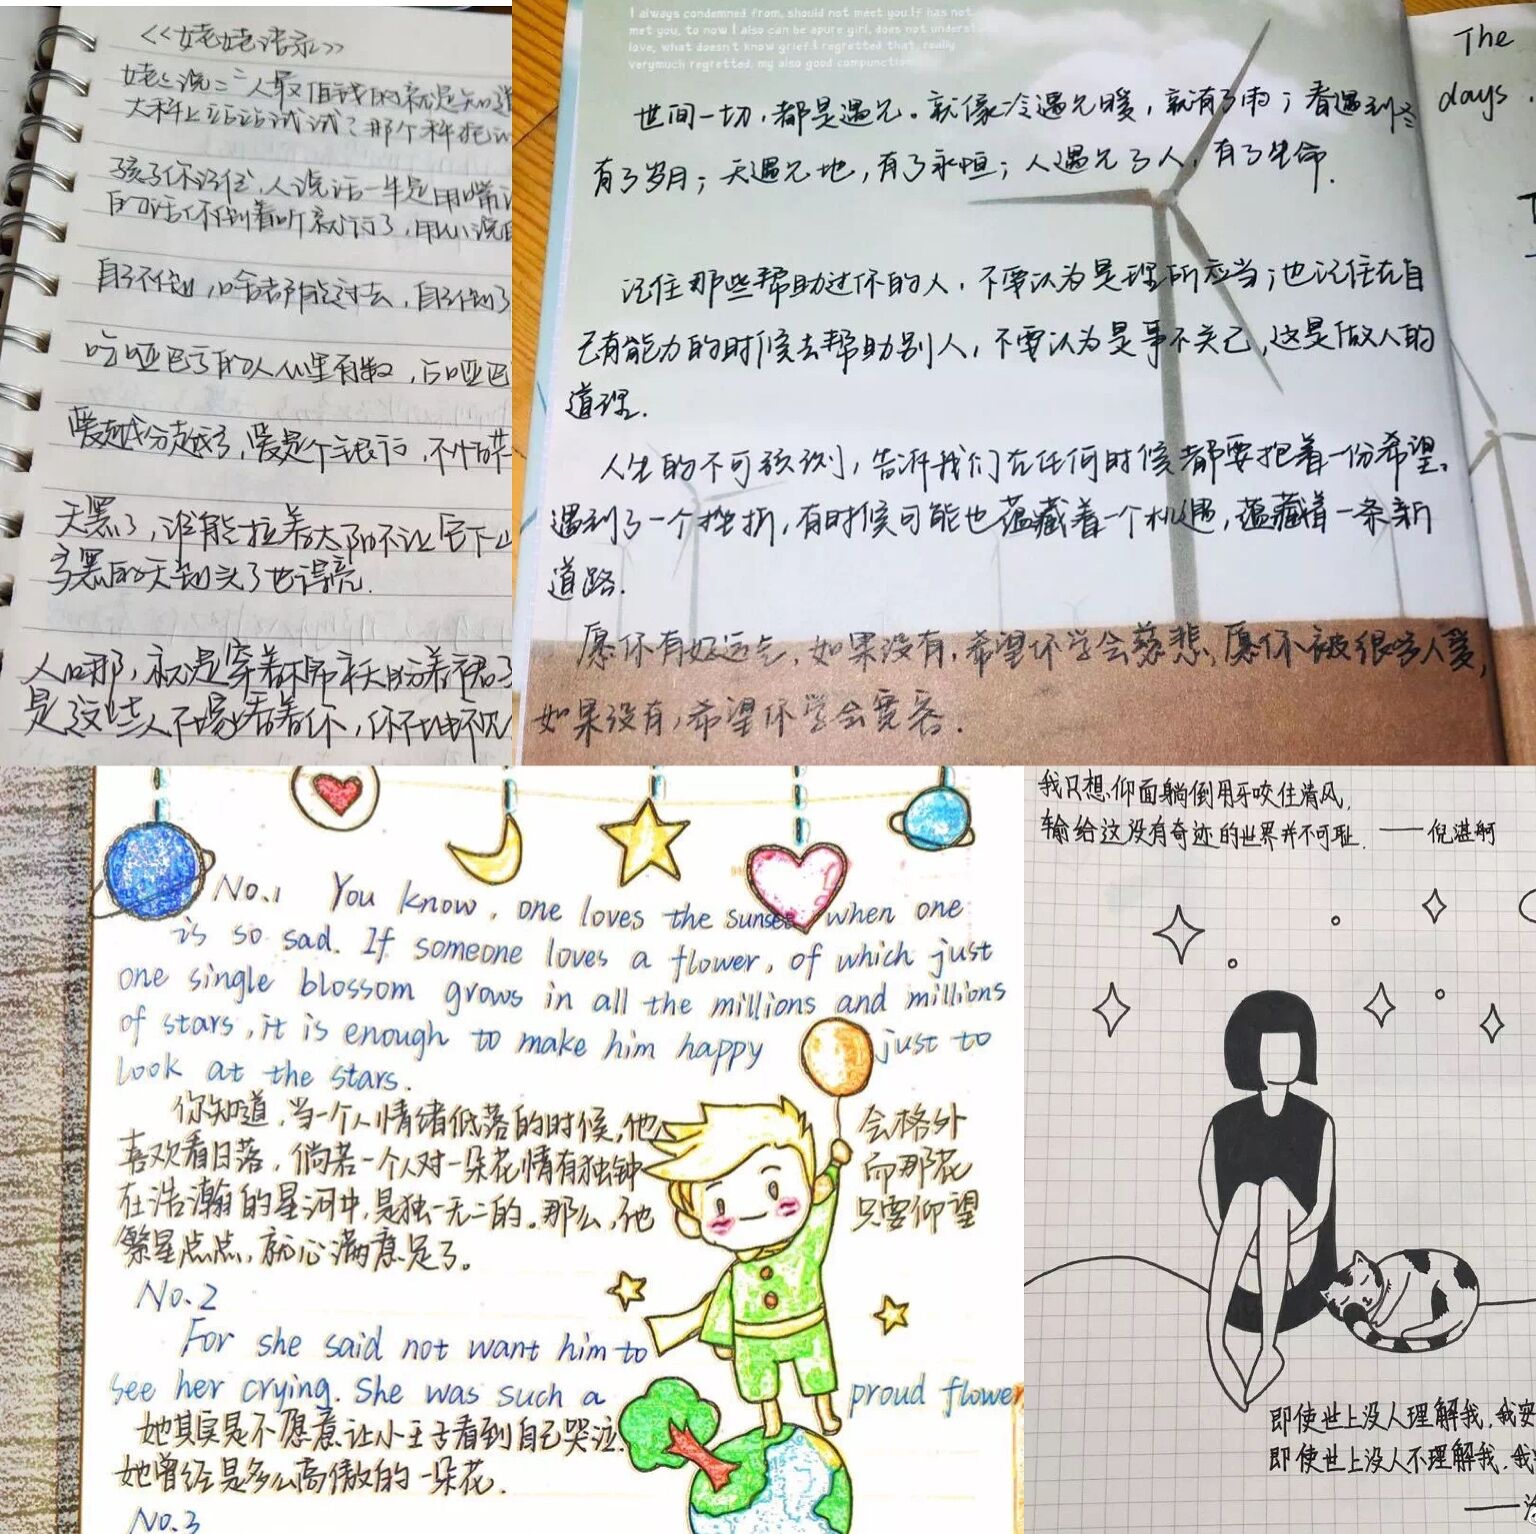 <<姥姥语录>>
姥姥说：人最值钱的就是知道
大秤上站站试试？那个秤把
孩子你记住，人说话一半是用嘴
的话不到着听就行了，用心说
自己不倒，啥都能过去，自己倒了
吃哑巴亏的人心里有数，
爱越分越多，爱是个银行，不怕花
天黑了，谁能拉着太阳不让它下山
多黑的天到头了也得亮.
人哪，就是穿着
是这些人不吭声看着你，你不
I always condemned from, should not meet you.If has not
met you, to now I also can be apure girl, does not underst
love, what doesn't know grief.i regretted that, really
verymuch regretted, my also good compunction
世间一切，都是遇见。就像冷遇见暖，就有了雨；春遇到冬
有了岁月；天遇见地，有了永恒；人遇见了人，有了生命.
记住那些帮助过你的人，不要认为是理所应当；也记住在自
己有能力的时候去帮助别人，不要认为是事不关己，这是做人的
道理.
人生的不可预测，告诉我们在任何时候都要抱着一份希望。
遇到了一个挫折，有时候可能也蕴藏着一个机遇，蕴藏着一条新
道路.
愿你有好运气，如果没有，希望你学会慈悲，愿你被很多人爱，
如果没有，希望你学会宽容.
The
days.
No.1 You know, one loves the sunset when one
is so sad. If someone loves a flower, of which just
one single blossom grows in all the millions and millions
of stars, it is enough to make him happy just to
look at the stars.
你知道，当一个人情绪低落的时候，他会格外
喜欢看日落，倘若一个人对一朵花情有独钟而那花
在浩瀚的星河中，是独一无二的。那么，他只要仰望
繁星点点，就心满意足了。
No.2
For she said not want him to
see her crying. She was such a proud flower
她其实是不愿意让小王子看到自己哭泣.
她曾经是多么高傲的一朵花.
No.3
我只想仰面躺倒用牙咬住清风，
输给这没有奇迹的世界并不可耻. ——倪湛舸
即使世上没人理解我，我安
即使世上没人不理解我，我